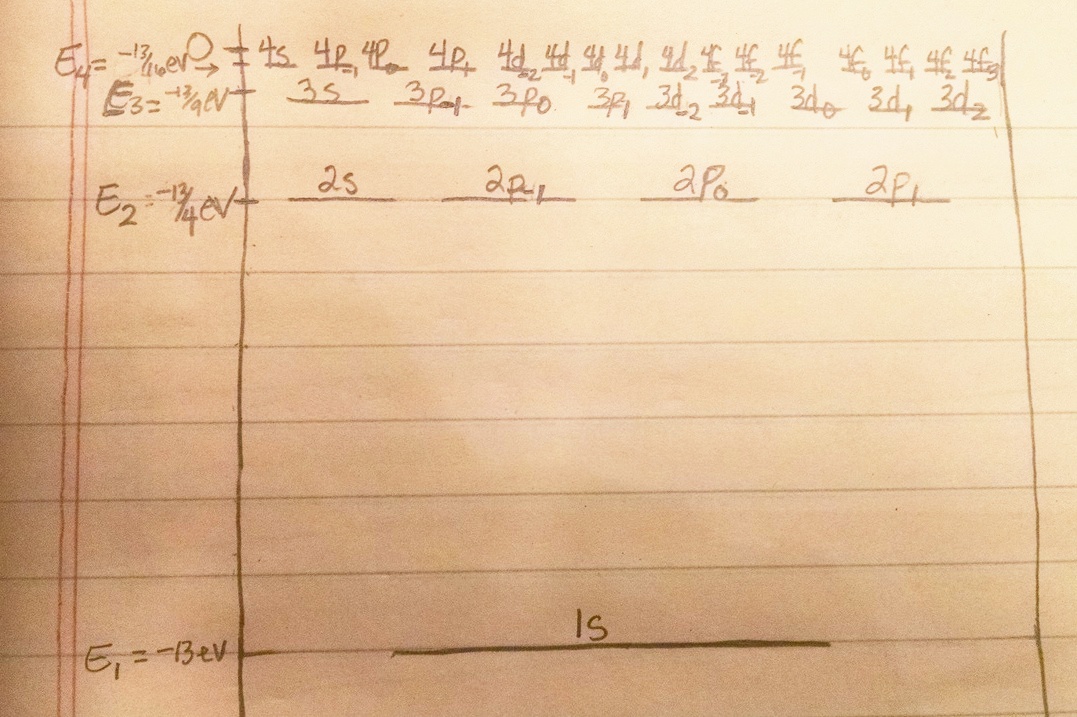 E₄ = -13/16 eV 0 → 4s 4p₋₁ 4p₀ 4p₁ 4d₋₂ 4d₋₁ 4d₀ 4d₁ 4d₂ 4f₋₃ 4f₋₂ 4f₋₁ 4f₀ 4f₁ 4f₂ 4f₃
E₃ = -13/9 eV 3s 3p₋₁ 3p₀ 3p₁ 3d₋₂ 3d₋₁ 3d₀ 3d₁ 3d₂
E₂ = -13/4 eV 2s 2p₋₁ 2p₀ 2p₁
E₁ = -13 eV 1s